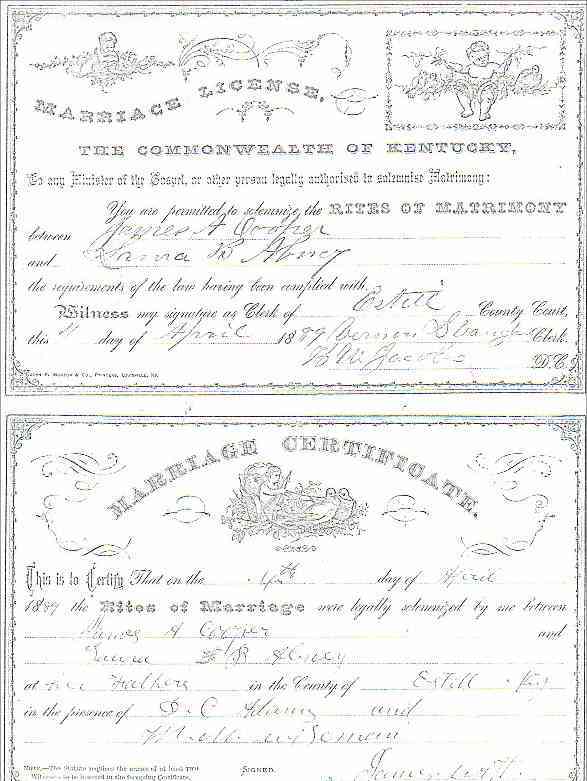 MARRIAGE LICENSE,
THE COMMONWEALTH OF KENTUCKY,
To any Minister of the Gospel, or other person legally authorised to solemnize Matrimony:
You are permitted to solemnize the RITES OF MATRIMONY
between James A Cooper
and B Abney
the requirements of the law having been complied with.
Witness my signature as Clerk of Estill County Court,
this day of April 1889 Clerk.
H W Jacobs D.C.
& Co., Printers, Louisville, Ky.
MARRIAGE CERTIFICATE.
This is to Certify That on the 4th day of April
1889 the Rites of Marriage were legally solemnized by me between
James A Cooper and
B Abney
at her Fathers in the County of Estill Ky
in the presence of D. C. and
Wiseman
NOTE.—The Statute requires the names of at least TWO
Witnesses to be inserted in the foregoing Certificate.
SIGNED,
James